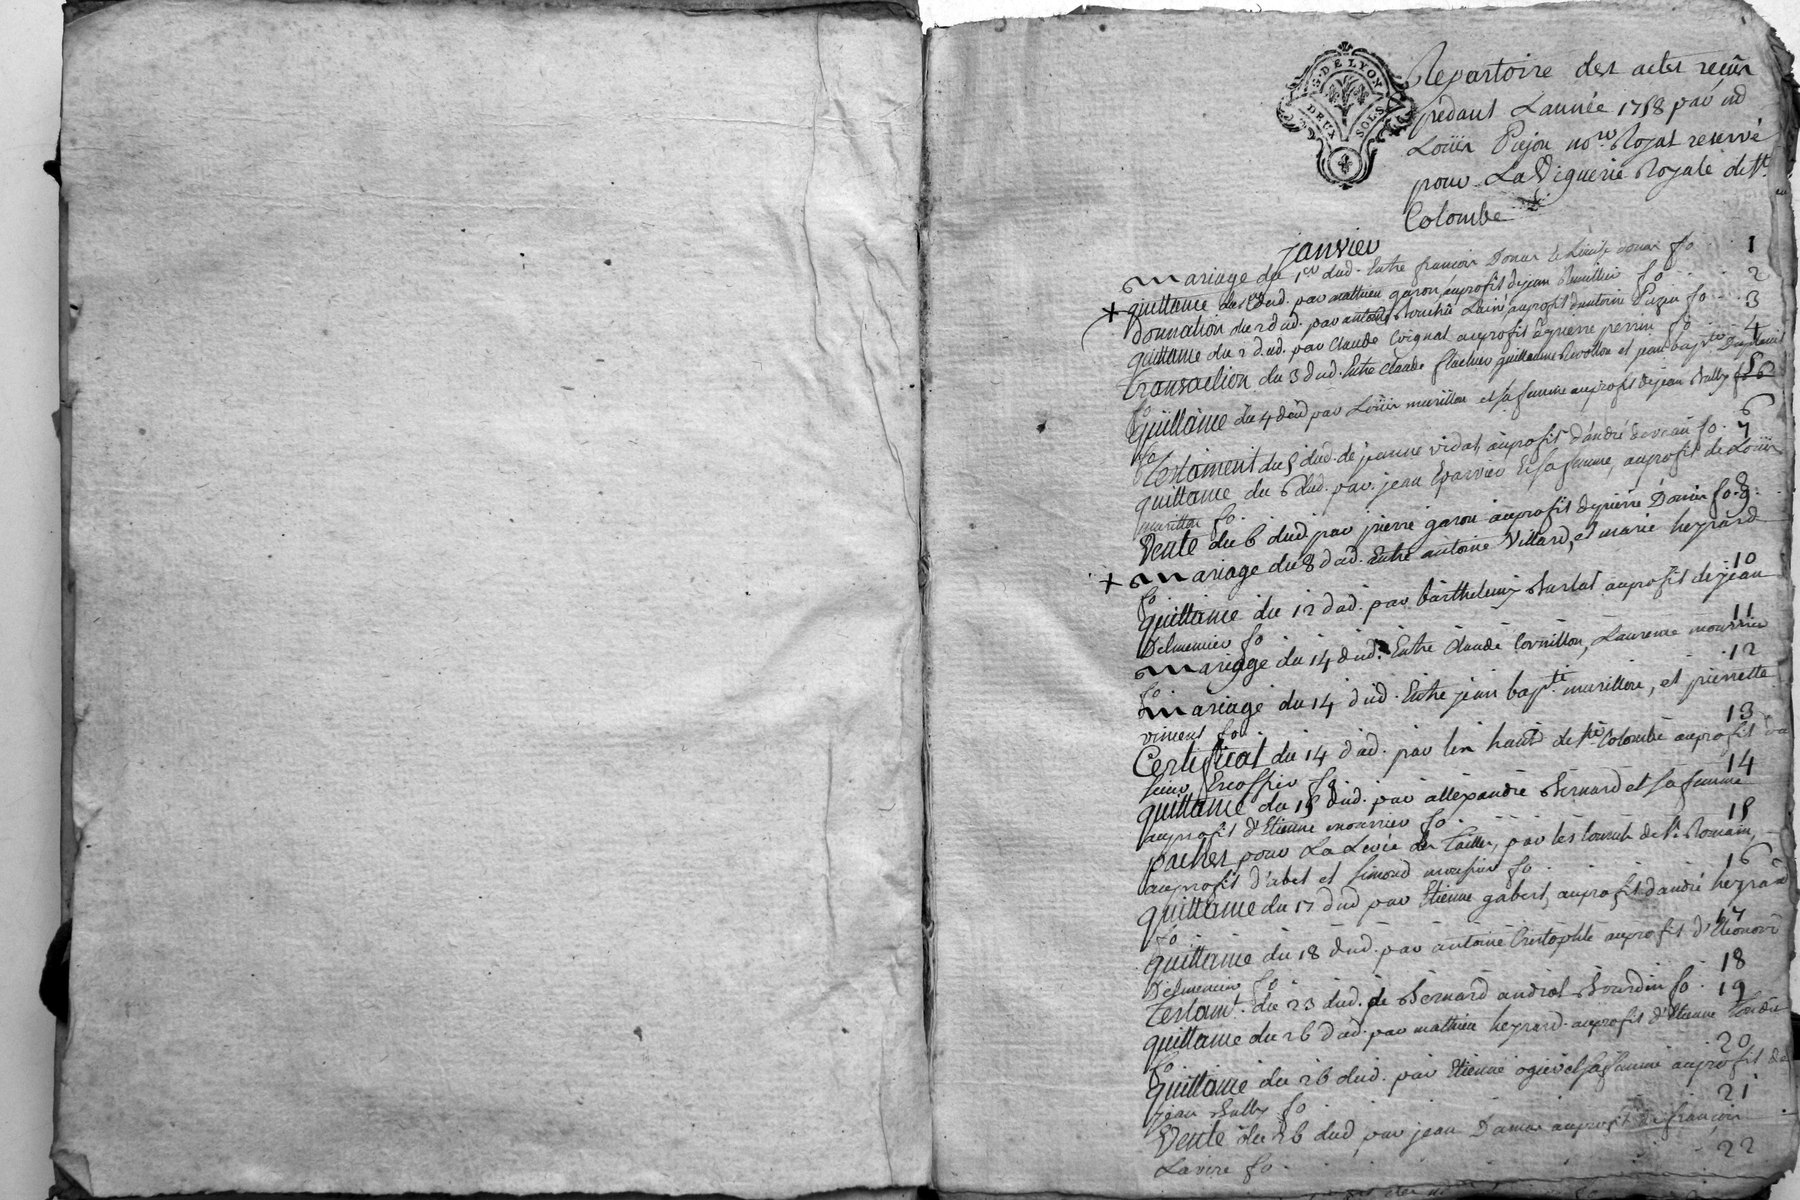 G. DE LYON
DEUX SOLS
Repertoire des actes reçus
pēdant L'année 1758 par
Loüis Pujon no.re Royal reservé
pour La Viguerie Royale de Ste
Colombe
janvier
mariage du 1er dud. Entre françois Donat fo 1
quittance du dud. par mathieu garon auprofit dejean fo 2
Donnation du 2 dud. par antoine auprofit dantoine fo 3
quittance du 2 dud. par Claude Coignat auprofit depierre perrin fo 4
transaction du 3 dud. Entre Claude flacher guillaume Revollon et jean bapte
fo 5
quittance du 4 dud par Loüis murillon et sa femme auprofit dejean Bally
fo 6
Testament du 5 dud. de jeanne vidal, auprofit d'andré fo. 7
quittance du 6 dud. par jean Eparvier Et sa femme, auprofit de Loüis
murillon fo.
Vente du 6 dud par pierre garon auprofit depierre Donin fo. 9.
mariage du 8 dud. Entre antoine Villard, et marie heyrard
fo 10
quittance du 12 dud. par barthelemy Burlat auprofit de jean
Delmenier fo 11
mariage du 14 dud. Entre Claude Cornillon, Laurence mourrier
fo 12
mariage du 14 dud. Entre jean bapte murillon, et pierrette
viment fo. 13
Certificat du 14 dud. par len haut de Ste Colombe auprofit du
sieur Escoffier fo 14
quittance du 15 dud. par allexandre Bernard et sa femme
auprofit d'Etienne mourrier fo. 15
paches pour La Levée des Tailles, par les Consuls de St Romain,
auprofit d'abel et simond fo. 16
quittance du 17 dud par Etienne gabert, auprofit d'andré heyrard
fo. 17
quittance du 18 dud. par antoine Cristophle auprofit d'Eleonore
Delmenier fo. 18
Testam.t du 23 dud. de Bernard androt Bourdin fo. 19
quittance du 26 dud. par mathieu heyrard auprofit d'Etienne
fo. 20
quittance du 26 dud. par Etienne ogier et sa femme auprofit de
jean Bally fo 21
Vente du 26 dud, par jean Damas auprofit de françois
Lavire fo. 22